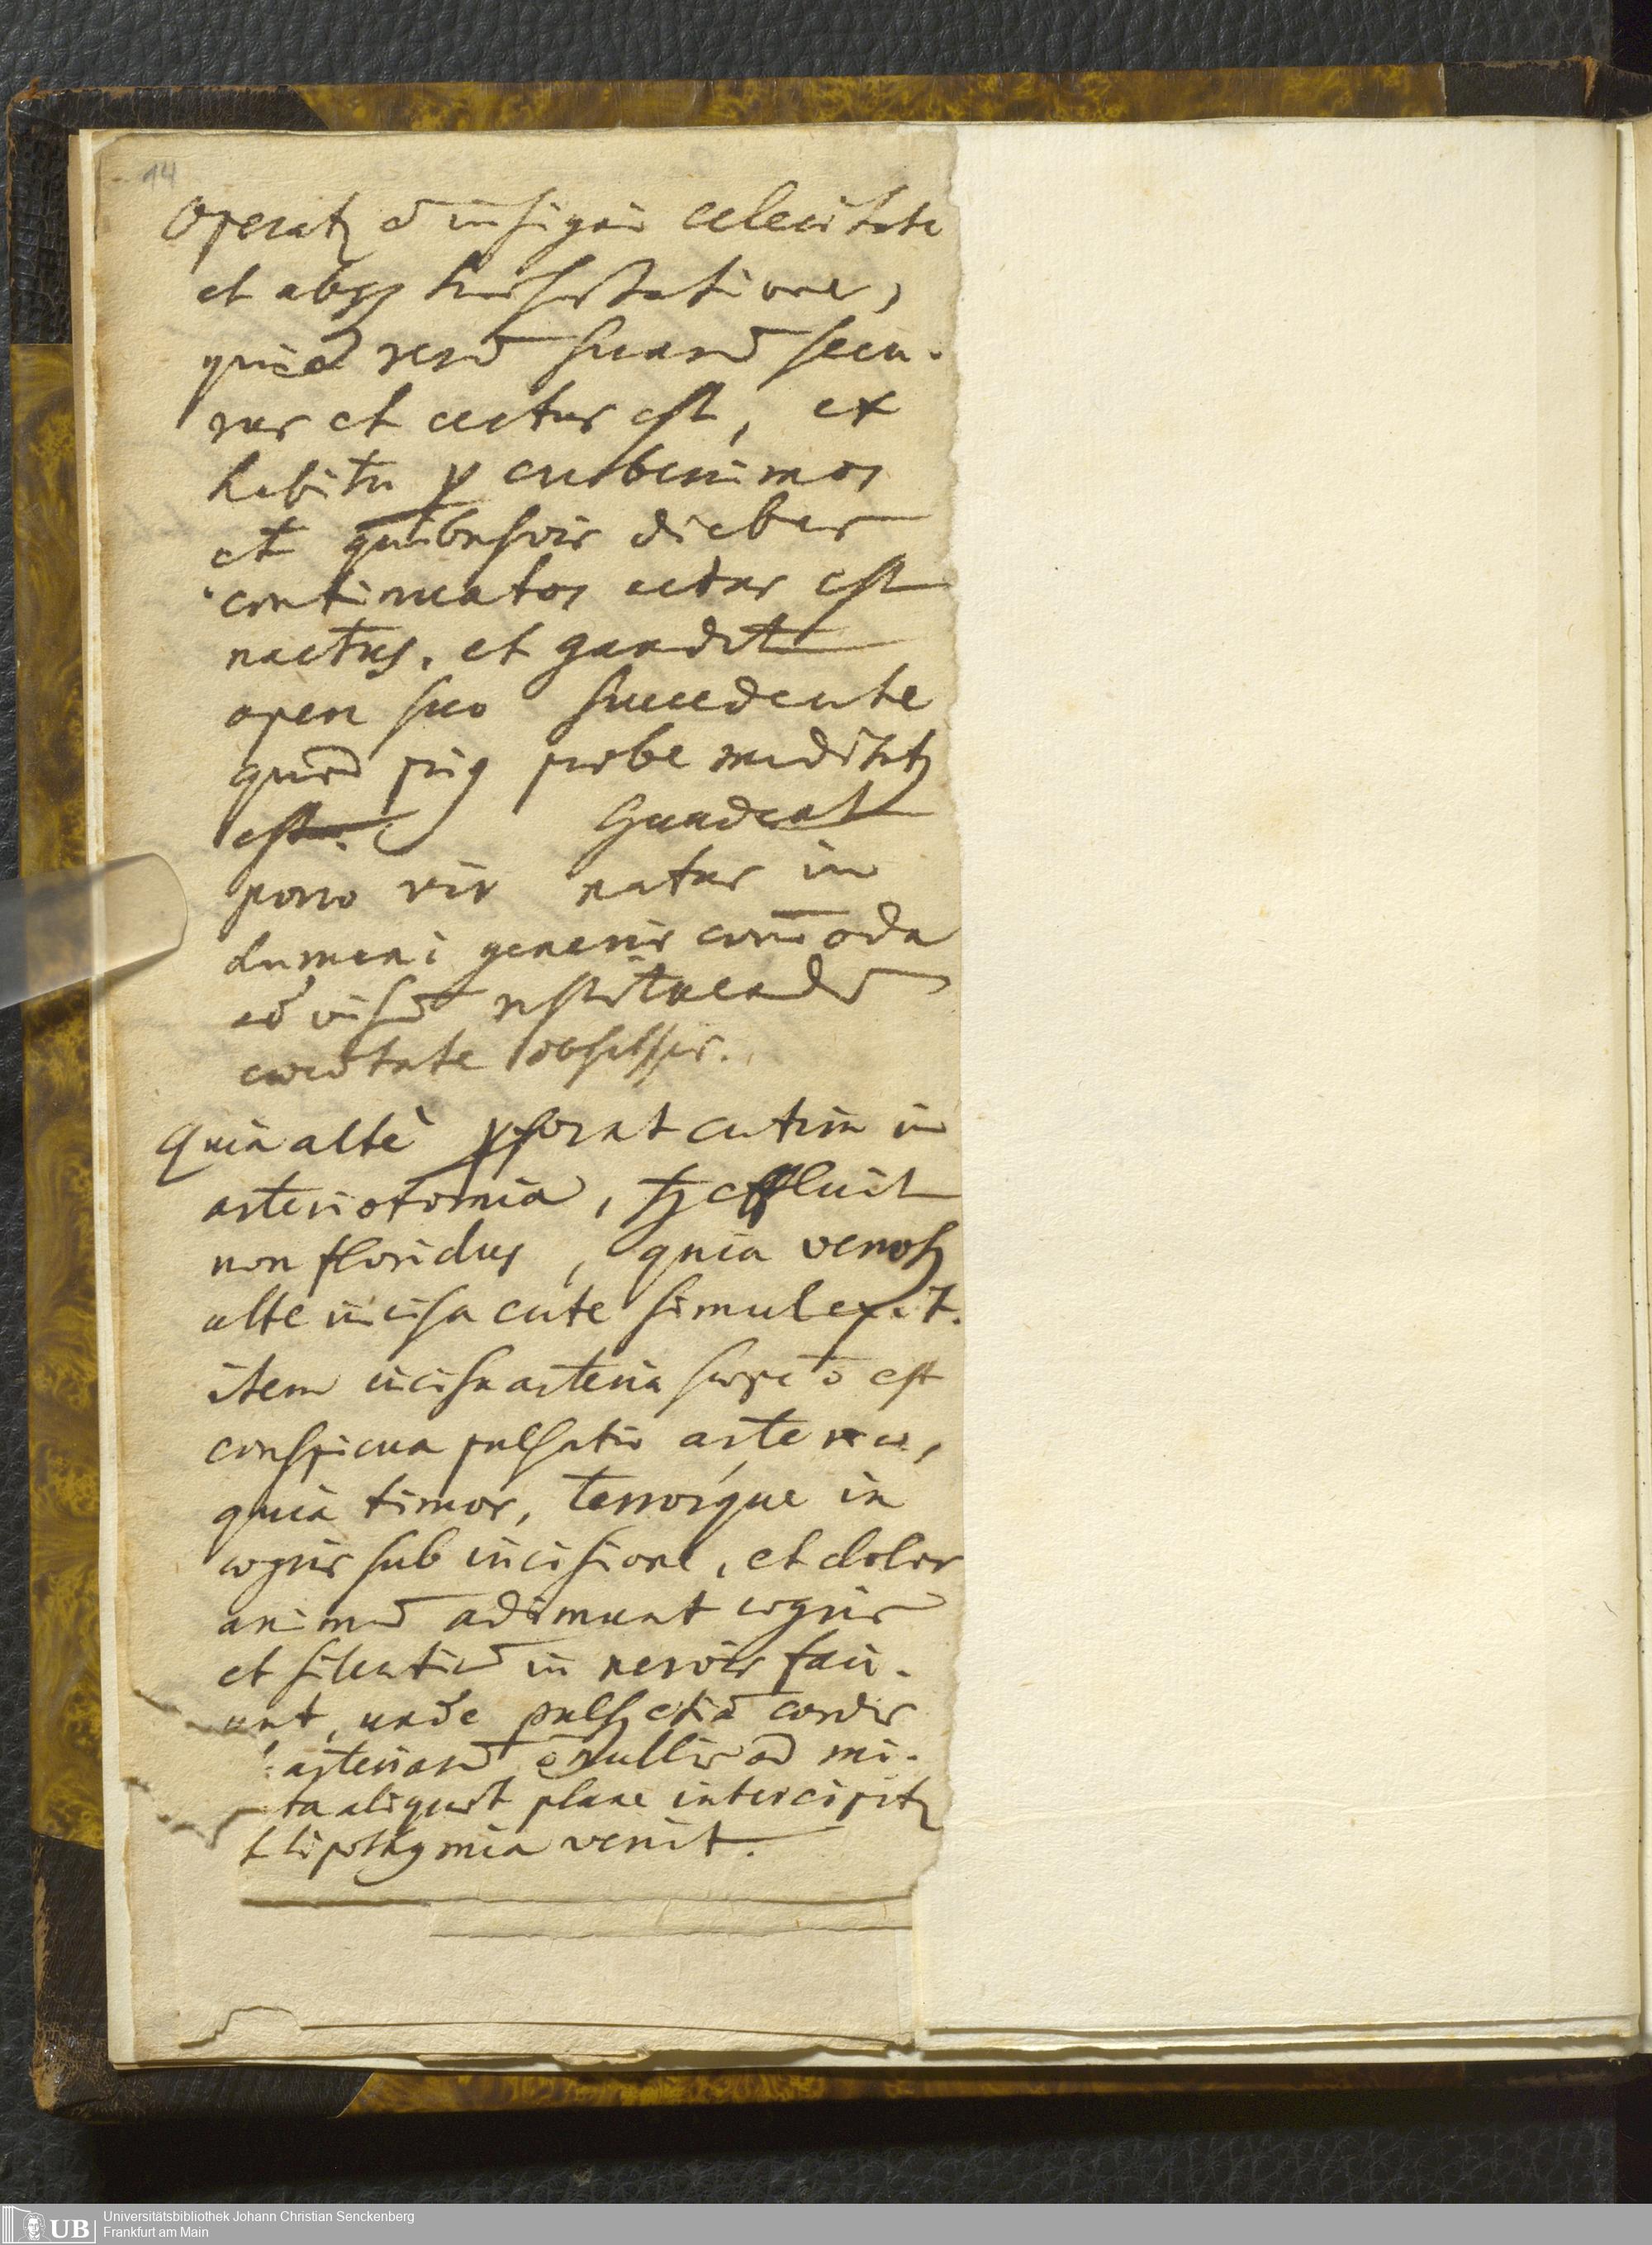 14
Operatꝫ cū insigni celeritate
et absqꝫ haesitatione,
quia rerū suarū secu-
rus et certus est, ex
habitu ꝑ creberrimos
et quibusvis diebus
continuatos actus est
nactus, et gaudet
opere suo succedente
quod priꝰ probe meditatꝫ
est. Gaudeat
porro vir natus in
humani generis com̄oda
ad visū restituendū
coecitate obsessis.
Quia altè ꝑforat cutim in
arteriotomia, effluit
non floridus, quia venosꝫ
alte incisa cute simul exit.
item incisa arteria saepe ō est
conspicua pulsatio arteriae,
quia timor, terrorque in
aegris sub incisione, et dolor
animū adimunt aegris
et silentiū in nervis faci-
unt, unde pulsꝫ etiā cordis
arteriarū ōnullis ad mi-
ta aliquot plane intercipitꝫ
t lipothymia venit.
UB
Universitätsbibliothek Johann Christian Senckenberg
Frankfurt am Main